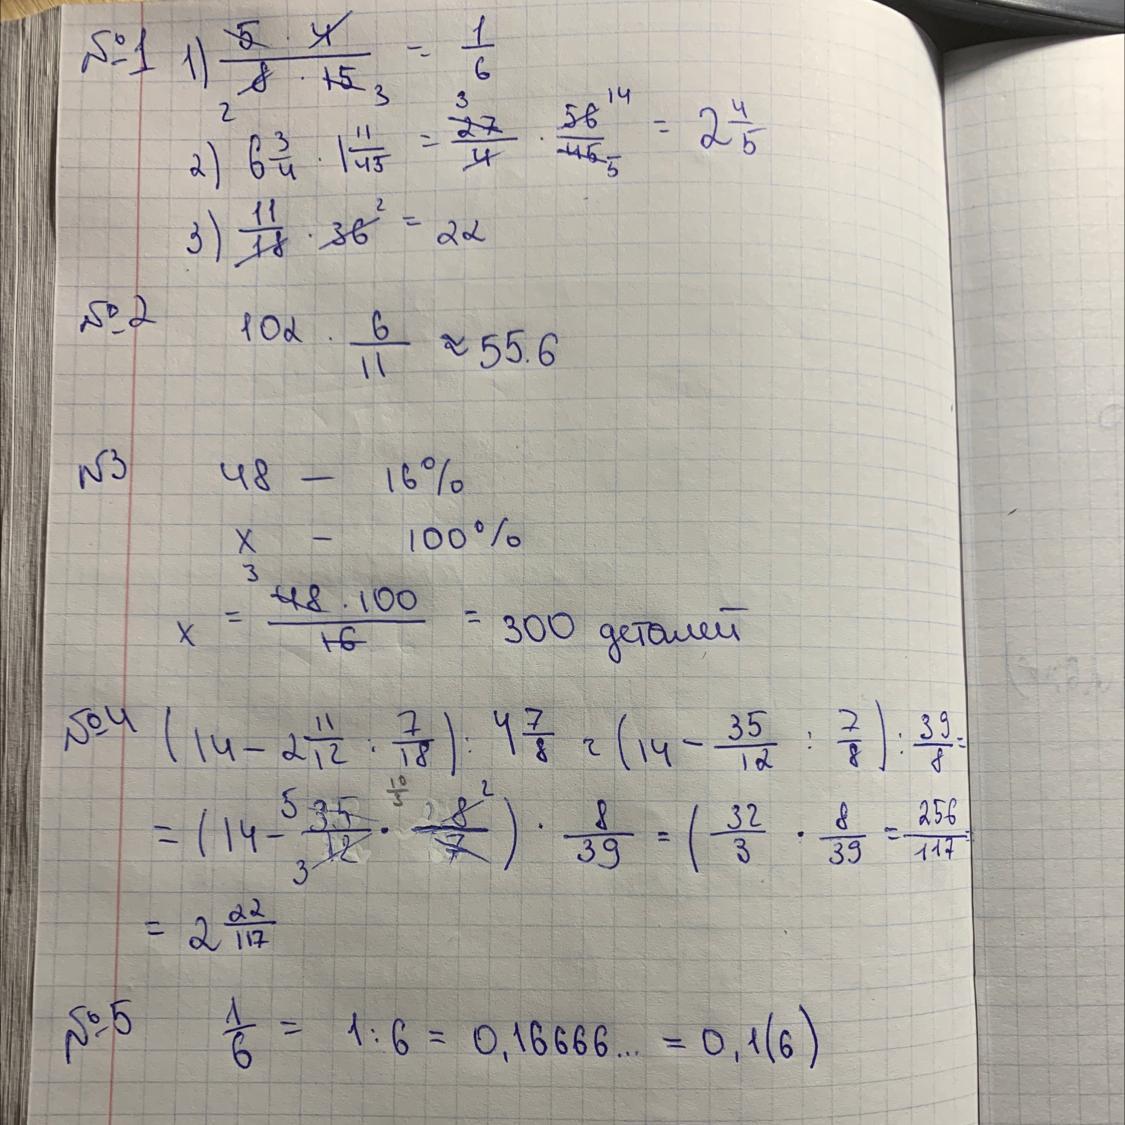 №1 1) (5 · 4)/(8 · 15) = 1/6
2 3
2) 6 3/4 · 1 11/45 = 27/4 · 56/45 = 2 4/5
3 14 5
3) 11/18 · 36 2 = 22
№2 102 · 6/11 ≈ 55.6
№3 48 — 16%
x — 100%
3
x = (48 · 100)/16 = 300 деталей
№4 (14 - 2 11/12 : 7/18) : 4 7/8 = (14 - 35/12 : 7/8) : 39/8 =
10/3
= (14 - 5 35/12 3 · 8 2/7) · 8/39 = (32/3 · 8/39 = 256/117 =
= 2 22/117
№5 1/6 = 1:6 = 0,16666... = 0,1(6)